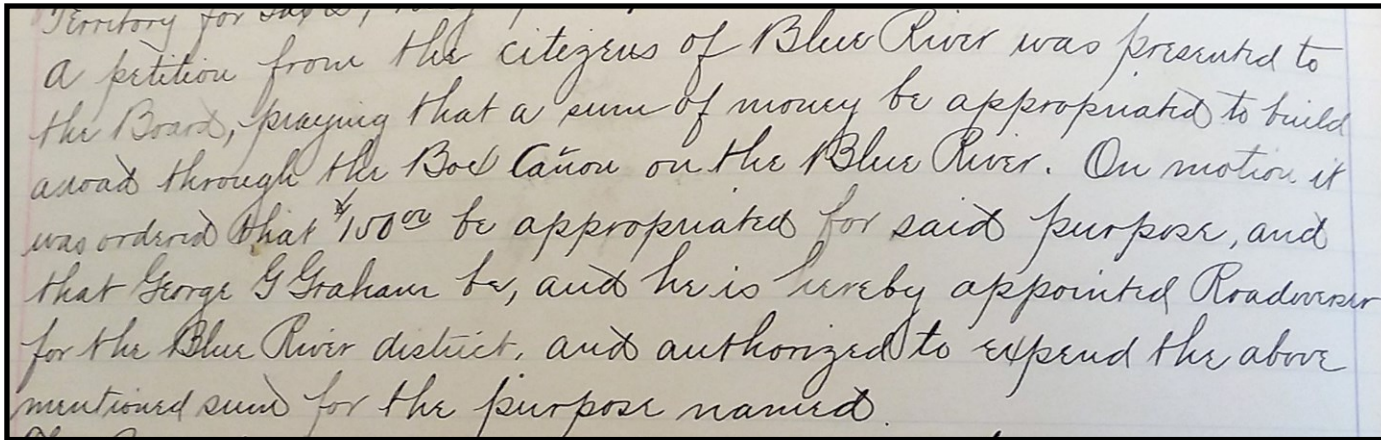 Territory for
A petition from the citizens of Blue River was presented to
the Board, praying that a sum of money be appropriated to build
a road through the Box Cañon on the Blue River. On motion it
was ordered that $100.00 be appropriated for said purpose, and
that George G Graham be, and he is hereby appointed Roadoverseer
for the Blue River district, and authorized to expend the above
mentioned sum for the purpose named.